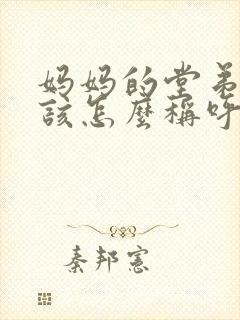 妈妈的堂弟
該怎麼稱呼
秦邦憲